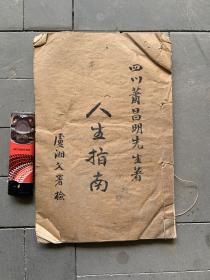 四川蕭昌明先生著
人生指南
盧湘文署檢